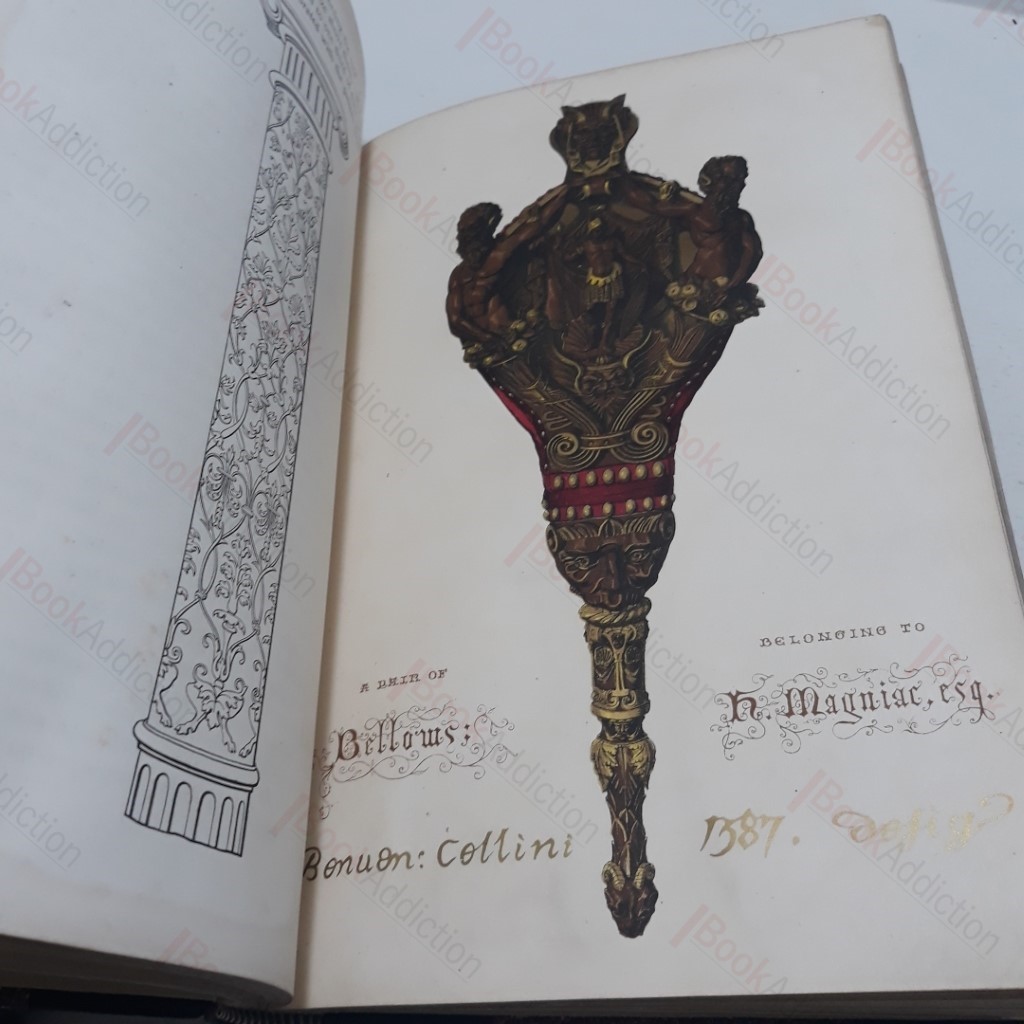 A PAIR OF
Bellows;
BELONGING TO
H. Magniac, esq.
Benuen: Cellini
1587.
BookAddiction